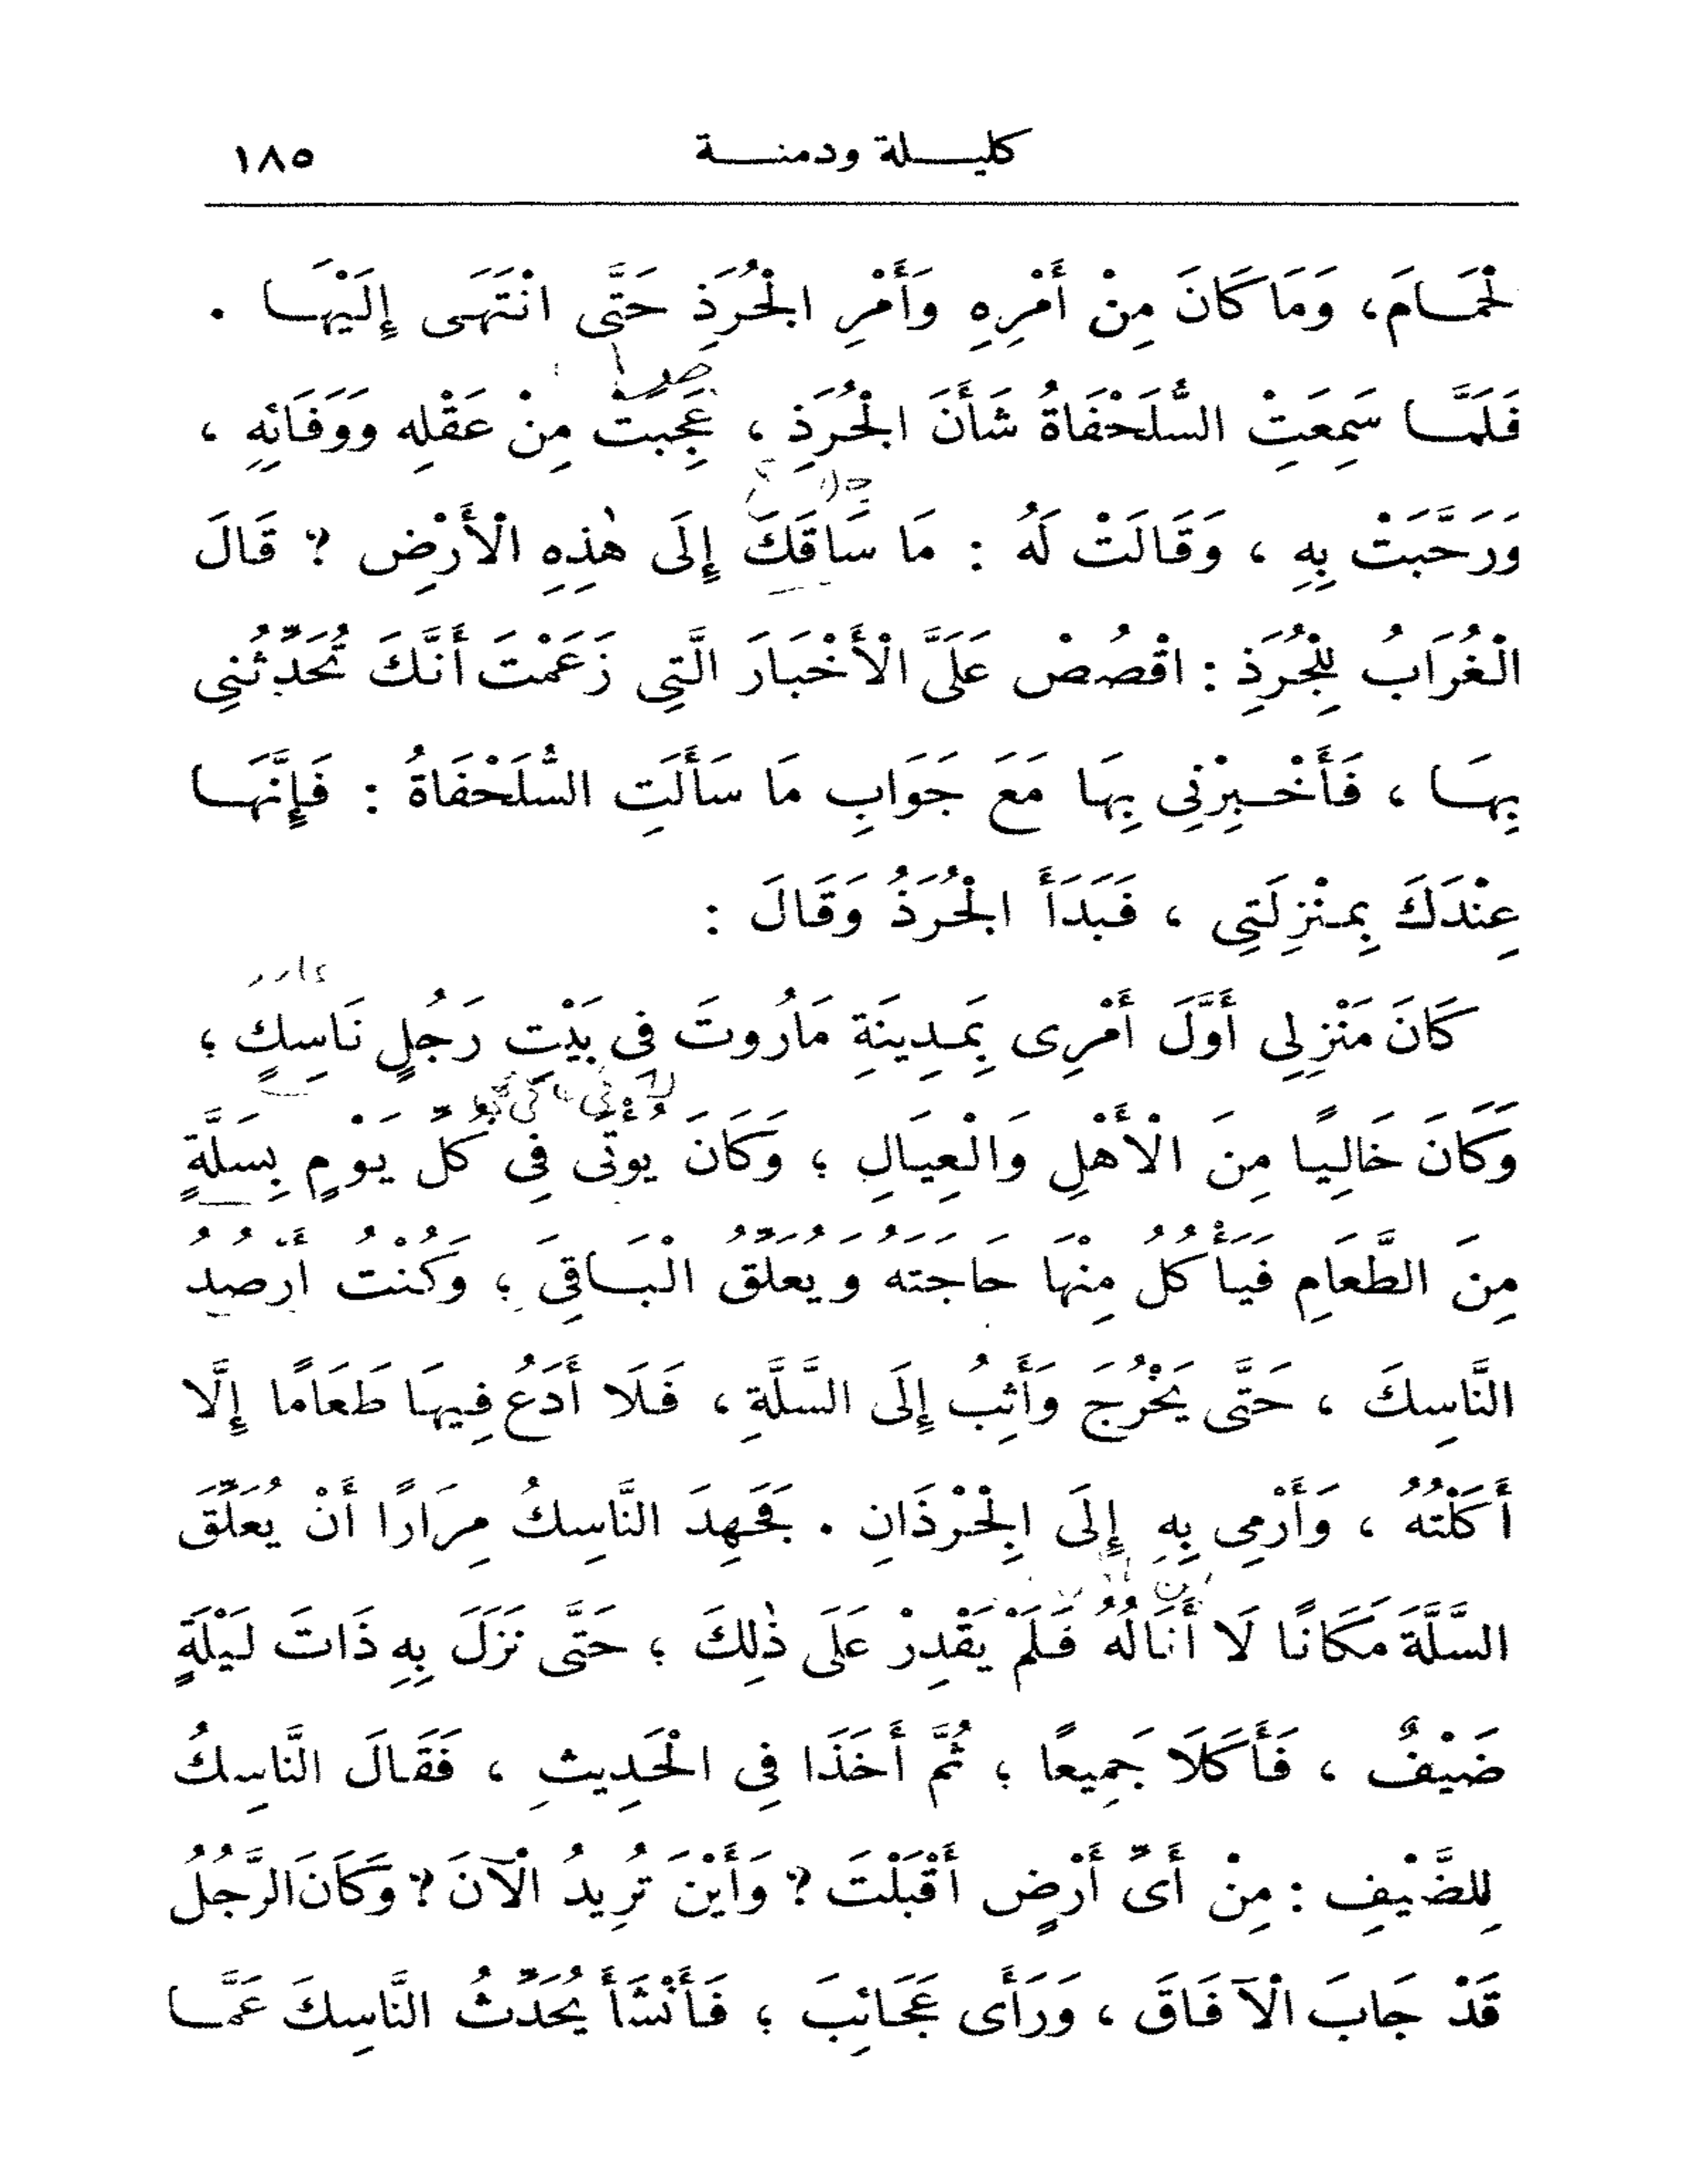 كليلة ودمنة ١٨٥
لْحَمَامَ، وَمَا كَانَ مِنْ أَمْرِهِ وَأَمْرِ الْجُرَذِ حَتَّى انْتَهَى إِلَيْهَا .
فَلَمَّا سَمِعَتِ السُّلَحْفَاةُ شَأْنَ الْجُرَذِ ، عَجِبَتْ مِنْ عَقْلِهِ وَوَفَائِهِ ،
وَرَحَّبَتْ بِهِ ، وَقَالَتْ لَهُ : مَا سَاقَكَ إِلَى هٰذِهِ الْأَرْضِ ؟ قَالَ
الْغُرَابُ لِلْجُرَذِ : اقْصُصْ عَلَىَّ الْأَخْبَارَ الَّتِى زَعَمْتَ أَنَّكَ تُحَدِّثُنِى
بِهَا ، فَأَخْبِرْنِى بِهَا مَعَ جَوَابِ مَا سَأَلَتِ السُّلَحْفَاةُ : فَإِنَّهَا
عِنْدَكَ بِمَنْزِلَتِى ، فَبَدَأَ الْجُرَذُ وَقَالَ :
كَانَ مَنْزِلِى أَوَّلَ أَمْرِى بِمَدِينَةِ مَارُوتَ فِى بَيْتِ رَجُلٍ نَاسِكٍ ؛
وَكَانَ خَالِيًا مِنَ الْأَهْلِ وَالْعِيَالِ ؛ وَكَانَ يُؤْتَى فِى كُلِّ يَوْمٍ بِسَلَّةٍ
مِنَ الطَّعَامِ فَيَأْكُلُ مِنْهَا حَاجَتَهُ وَيُعَلِّقُ الْبَاقِىَ ؛ وَكُنْتُ أَرْصُدُ
النَّاسِكَ ، حَتَّى يَخْرُجَ وَأَثِبُ إِلَى السَّلَّةِ ، فَلَا أَدَعُ فِيهَا طَعَامًا إِلَّا
أَكَلْتُهُ ، وَأَرْمِى بِهِ إِلَى الْجِرْذَانِ . فَجَهِدَ النَّاسِكُ مِرَارًا أَنْ يُعَلِّقَ
السَّلَّةَ مَكَانًا لَا أَنَالُهُ فَلَمْ يَقْدِرْ عَلَى ذٰلِكَ ؛ حَتَّى نَزَلَ بِهِ ذَاتَ لَيْلَةٍ
ضَيْفٌ ، فَأَكَلَا جَمِيعًا ؛ ثُمَّ أَخَذَا فِى الْحَدِيثِ ، فَقَالَ النَّاسِكُ
لِلضَّيْفِ : مِنْ أَىِّ أَرْضٍ أَقْبَلْتَ ؟ وَأَيْنَ تُرِيدُ الْآنَ ؟ وَكَانَ الرَّجُلُ
قَدْ جَابَ الْآفَاقَ ، وَرَأَى عَجَائِبَ ؛ فَأَنْشَأَ يُحَدِّثُ النَّاسِكَ عَمَّا